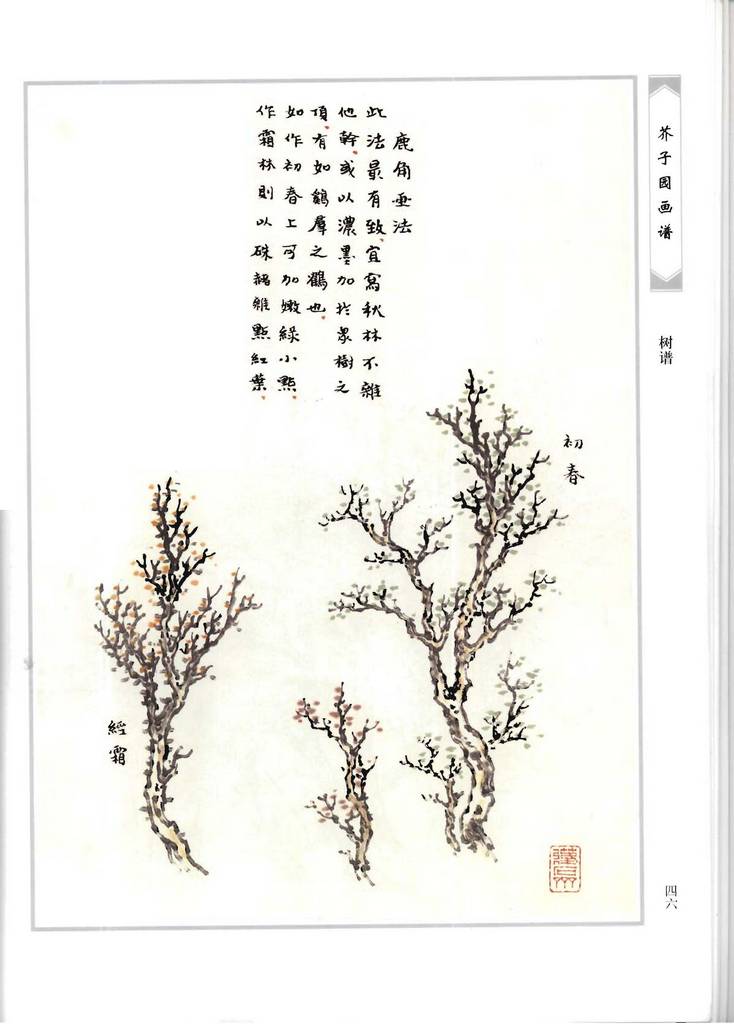 芥子园画谱
树谱
四六
鹿角法
此法最有致。宜寫秋林不雜
他幹。或以濃墨加扵衆樹之
頂。有如鷄羣之鶴也。
如作初春上可加嫩綠小點。
作霜林則以硃赭雜點紅葉。
初春
經霜